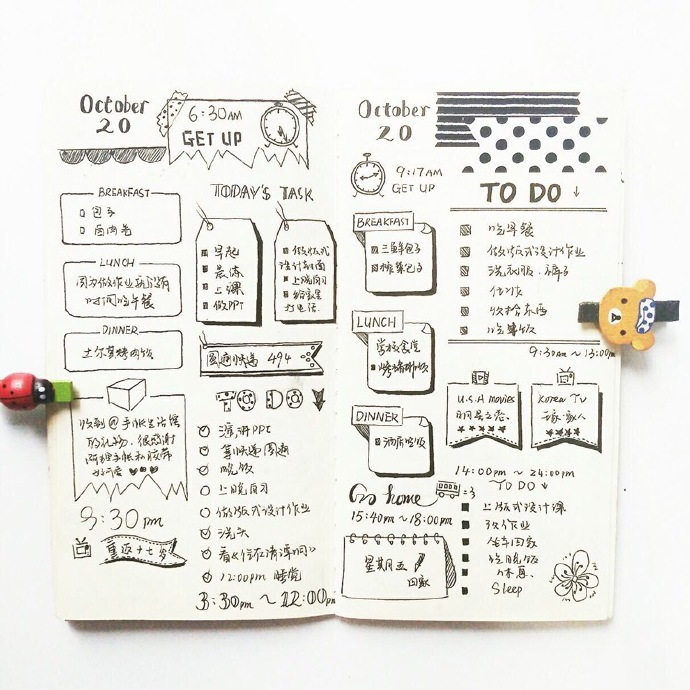 October
20
6:30AM
GET UP
BREAKFAST
包子
卤肉卷
LUNCH
因为做作业就没有
时间吃午餐
DINNER
土尔其烤肉饭
收到@手帐生活馆
的礼物,很感谢
阿狸手帐私胶带
好可爱
8:30pm
重返十七岁
TODAY'S TASK
早起
晨练
上课
做PPT
做版式
设计封面
上晚自习
给家里
打电话
圆通快递 494
TO DO
演讲PPT
拿快递 圆通
晚饭
上晚自习
做版式设计作业
洗头
12:00pm 睡觉
3:30pm ~ 12:00pm
October
20
9:17AM
GET UP
BREAKFAST
三鲜包子
LUNCH
学校食堂
烤猪排饭
DINNER
Go home
15:40pm~18:00pm
星期五
回家
TO DO ↓
吃早餐
做版式设计作业
洗衣服、裤子
作业
收拾东西
吃午饭
9:30am ~ 13:00pm
U.S.A movies
Korea TV
14:00pm ~ 24:00pm
TO DO ↓
上版式设计课
改作业
坐车回家
吃晚饭
休息
Sleep